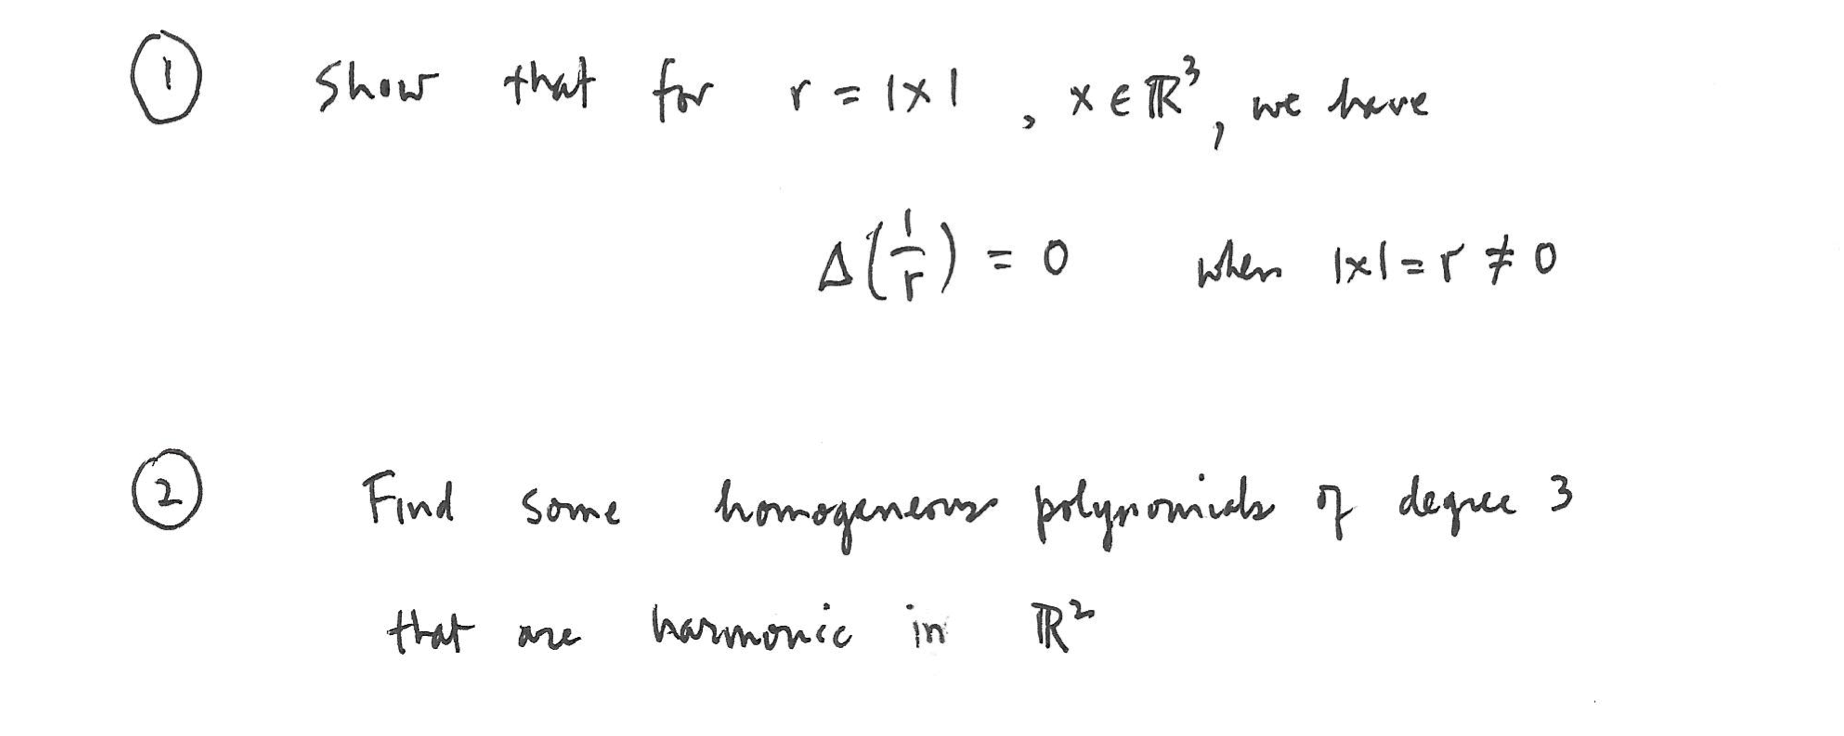 ① Show that for r = |x| , x ∈ ℝ³, we have
Δ(1/r) = 0 when |x| = r ≠ 0
② Find some homogeneous polynomials of degree 3
that are harmonic in ℝ²